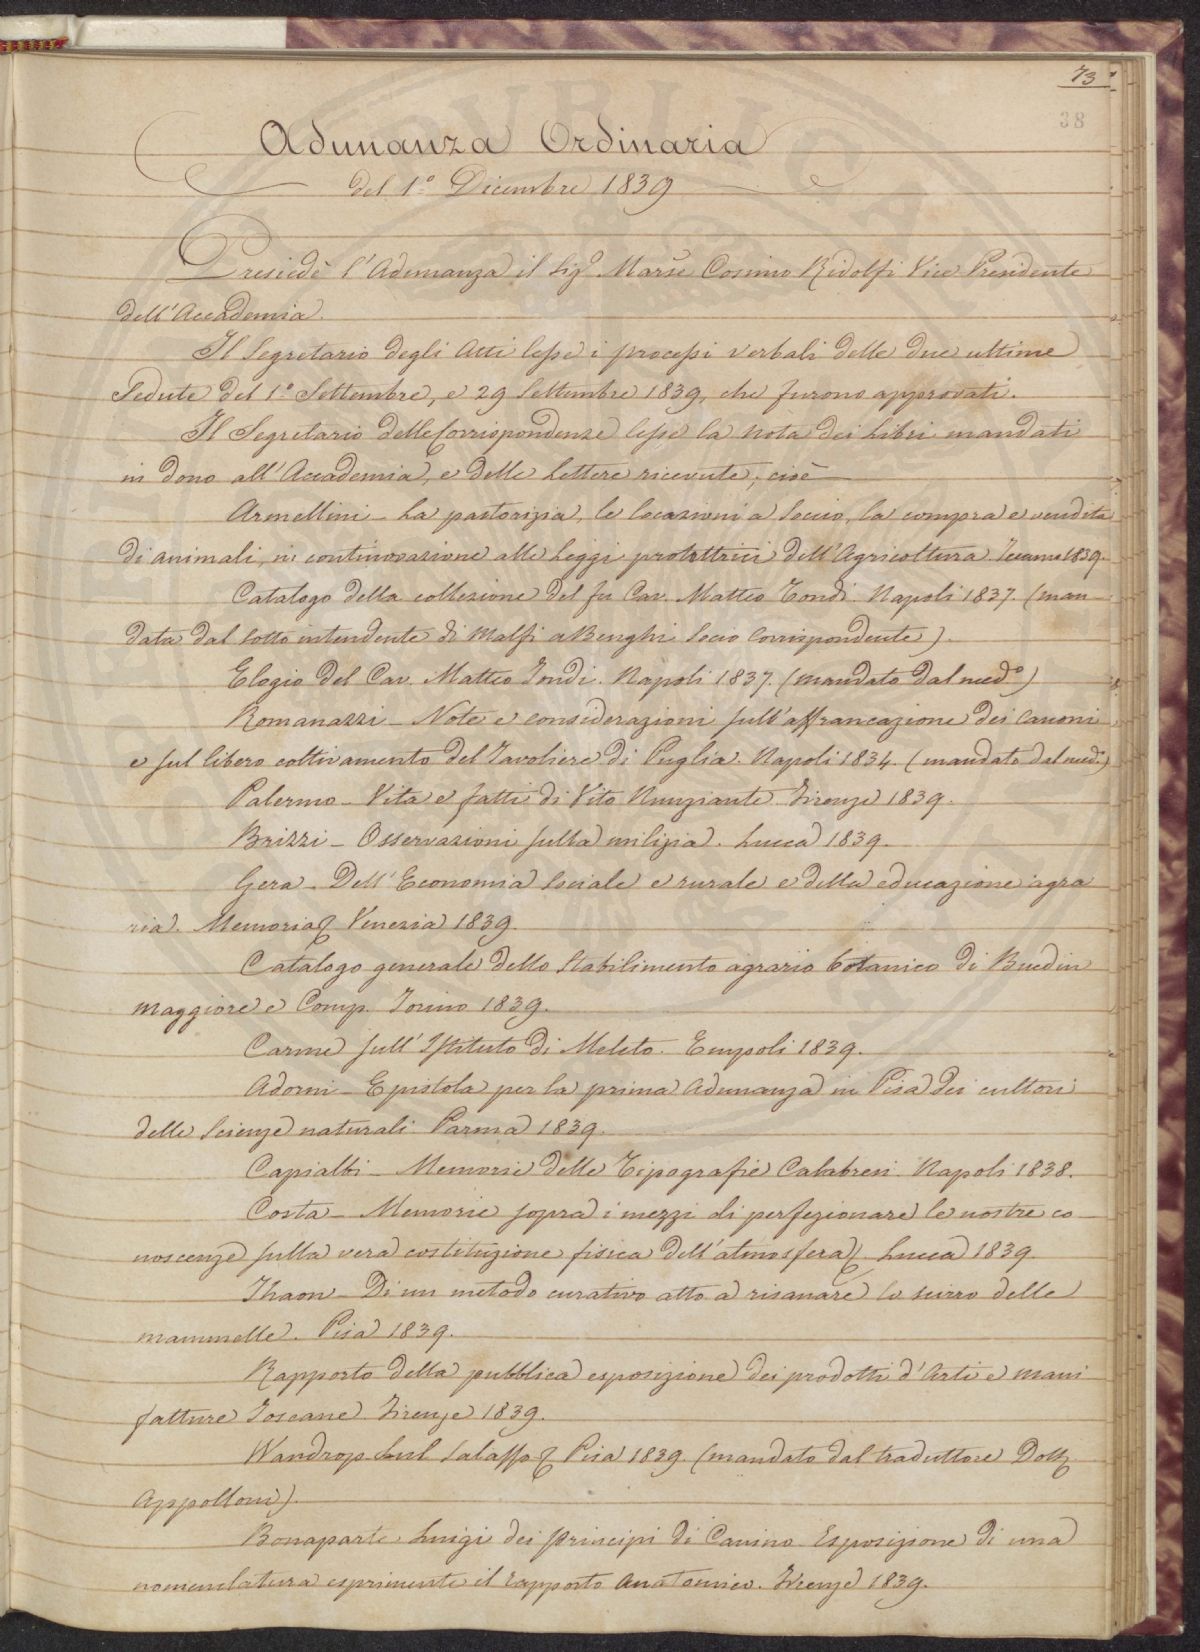 73
38
Adunanza Ordinaria
del 1.º Dicembre 1839
Presiedè l'Adunanza il Sig.º March.e Cosimo Ridolfi Vice Presidente
dell'Accademia.
Il Segretario degli Atti lesse i processi verbali delle due ultime
Sedute del 1.º Settembre, e 29 Settembre 1839, che furono approvati.
Il Segretario delle Corrispondenze lesse la nota dei Libri mandati
in dono all'Accademia, e delle Lettere ricevute, cioè
Armellini - La pastorizia, le locazioni a Soccio, la compra e vendita
di animali, in continovazione alle Leggi protettrici dell'Agricoltura. 1839.
Catalogo della collezione del fu Cav. Matteo Tondi. Napoli 1837. (man-
data dal Sotto intendente di Malfi a Benghi Socio Corrispondente).
Elogio del Cav. Matteo Tondi. Napoli 1837. (mandato dal med.º)
Romanazzi - Note e considerazioni sull'affrancazione dei Canoni
e sul libero coltivamento del Tavoliere di Puglia. Napoli 1834. (mandato dal med.º)
Palermo - Vita e fatti di Vito Nunziante. Firenze 1839.
Brizzi - Osservazioni sulla milizia. Lucca 1839.
Gera - Dell'Economia Sociale e rurale e della educazione agra
ria. Memoria Venezia 1839.
Catalogo generale dello Stabilimento agrario botanico di Buedin
maggiore e Comp. Torino 1839.
Carme sull'Istituto di Meleto. Empoli 1839.
Adorni - Epistola per la prima Adunanza in Pisa dei cultori
delle Scienze naturali. Parma 1839.
Capialbi - Memorie delle Tipografie Calabresi. Napoli 1838.
Costa - Memorie sopra i mezzi di perfezionare le nostre co
noscenze sulla vera costituzione fisica dell'atmosfera. Lucca 1839.
Thaon - Di un metodo curativo atto a risanare lo scirro delle
mammelle. Pisa 1839.
Rapporto della pubblica esposizione dei prodotti d'Arti e mani
fatture Toscane. Firenze 1839.
Wandrop - Sul Salasso Pisa 1839. (mandato dal traduttore Dott.
Appolloni).
Bonaparte Luigi dei principi di Canino. Esposizione di una
nomenclatura esprimente il rapporto Anatomico. Firenze 1839.